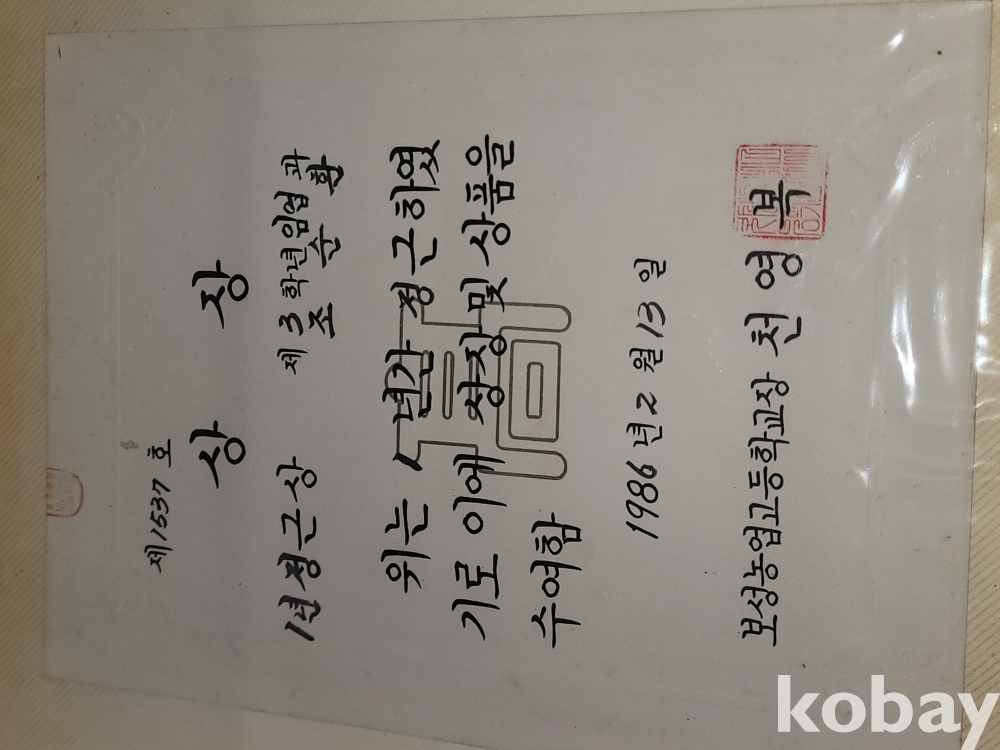 제1537호
상 장
1년정근상
제3학년임업과
조순환
위는 1년간 정근하였
기로 이에 상장 및 상품을
수여함
1986년 2월 13일
보성농업고등학교장 천영복
kobay